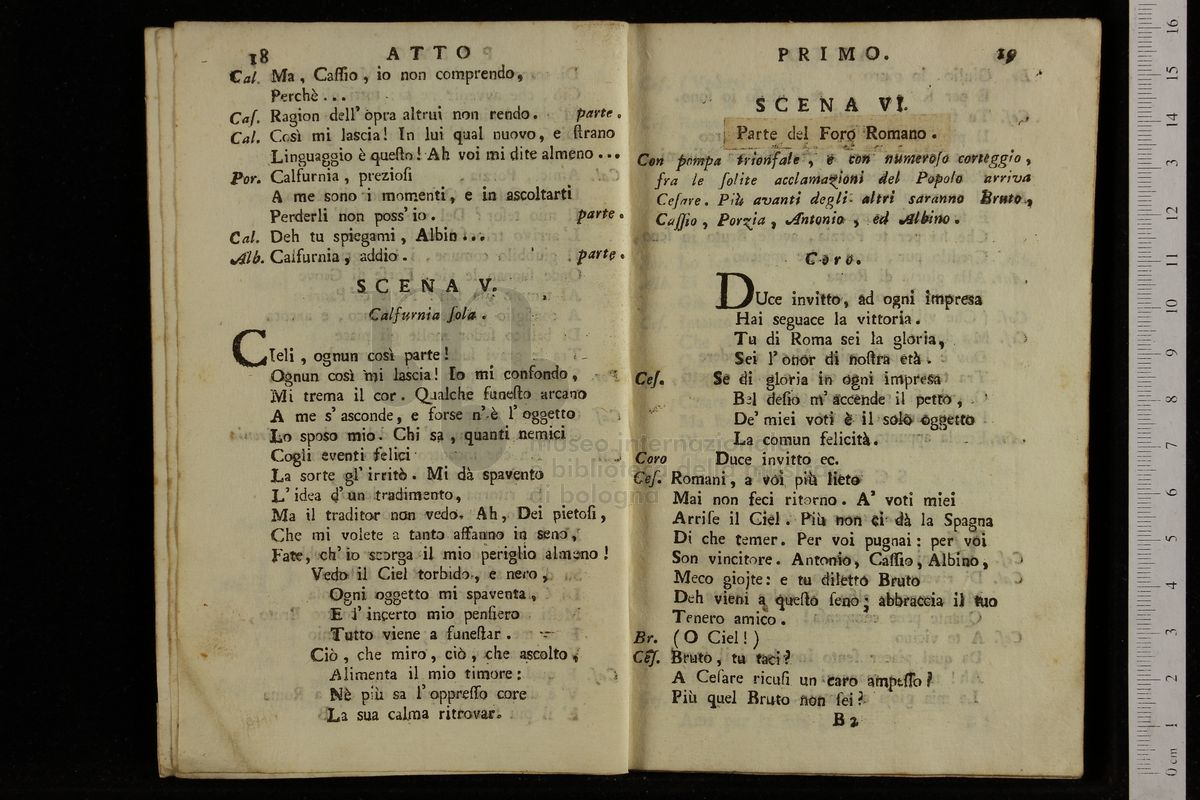 18 ATTO
Cal. Ma, Caſſio, io non comprendo,
Perchè...
Caſ. Ragion dell' opra altrui non rendo. parte.
Cal. Così mi laſcia! In lui qual nuovo, e ſtrano
Linguaggio è queſto! Ah voi mi dite almeno...
Por. Calfurnia, prezioſi
A me sono i momenti, e in aſcoltarti
Perderli non poss' io. parte.
Cal. Deh tu spiegami, Albin...
Alb. Calfurnia, addio. parte.
SCENA V.
Calfurnia ſola.
CIeli, ognun così parte!
Ognun così mi laſcia! Io mi confondo,
Mi trema il cor. Qualche funeſto arcano
A me s' asconde, e forse n' è l' oggetto
Lo sposo mio. Chi sa, quanti nemici
Cogli eventi felici
La sorte gl' irritò. Mi dà spavento
L' idea d' un tradimento,
Ma il traditor non vedo. Ah, Dei pietoſi,
Che mi volete a tanto affanno in seno,
Fate, ch' io scorga il mio periglio almeno!
Vedo il Ciel torbido, e nero,
Ogni oggetto mi spaventa,
E l' incerto mio penſiero
Tutto viene a funeſtar.
Ciò, che miro, ciò, che ascolto,
Alimenta il mio timore:
Nè più sa l' oppreſſo core
La sua calma ritrovar.
PRIMO. 19
SCENA VI.
Parte del Foro Romano.
Con pompa trionfale, e con numeroſo corteggio,
fra le ſolite acclamazioni del Popolo arriva
Ceſare. Più avanti degli altri saranno Bruto,
Caſſio, Porzia, Antonio, ed Albino.
Coro.
DUce invitto, ad ogni impresa
Hai seguace la vittoria.
Tu di Roma sei la gloria,
Sei l' onor di noſtra età.
Ceſ. Se di gloria in ogni impresa
Bel deſio m' accende il petto,
De' miei voti è il solo oggetto
La comun felicità.
Coro Duce invitto ec.
Ceſ. Romani, a voi più lieto
Mai non feci ritorno. A' voti miei
Arriſe il Ciel. Più non ci dà la Spagna
Di che temer. Per voi pugnai: per voi
Son vincitore. Antonio, Caſſio, Albino,
Meco giojte: e tu diletto Bruto
Deh vieni a queſto ſeno; abbraccia il tuo
Tenero amico.
Br. (O Ciel!)
Ceſ. Bruto, tu taci?
A Ceſare ricuſi un caro ampleſſo?
Più quel Bruto non ſei?
B2
museo internazionale
e biblioteca della musica
di bologna